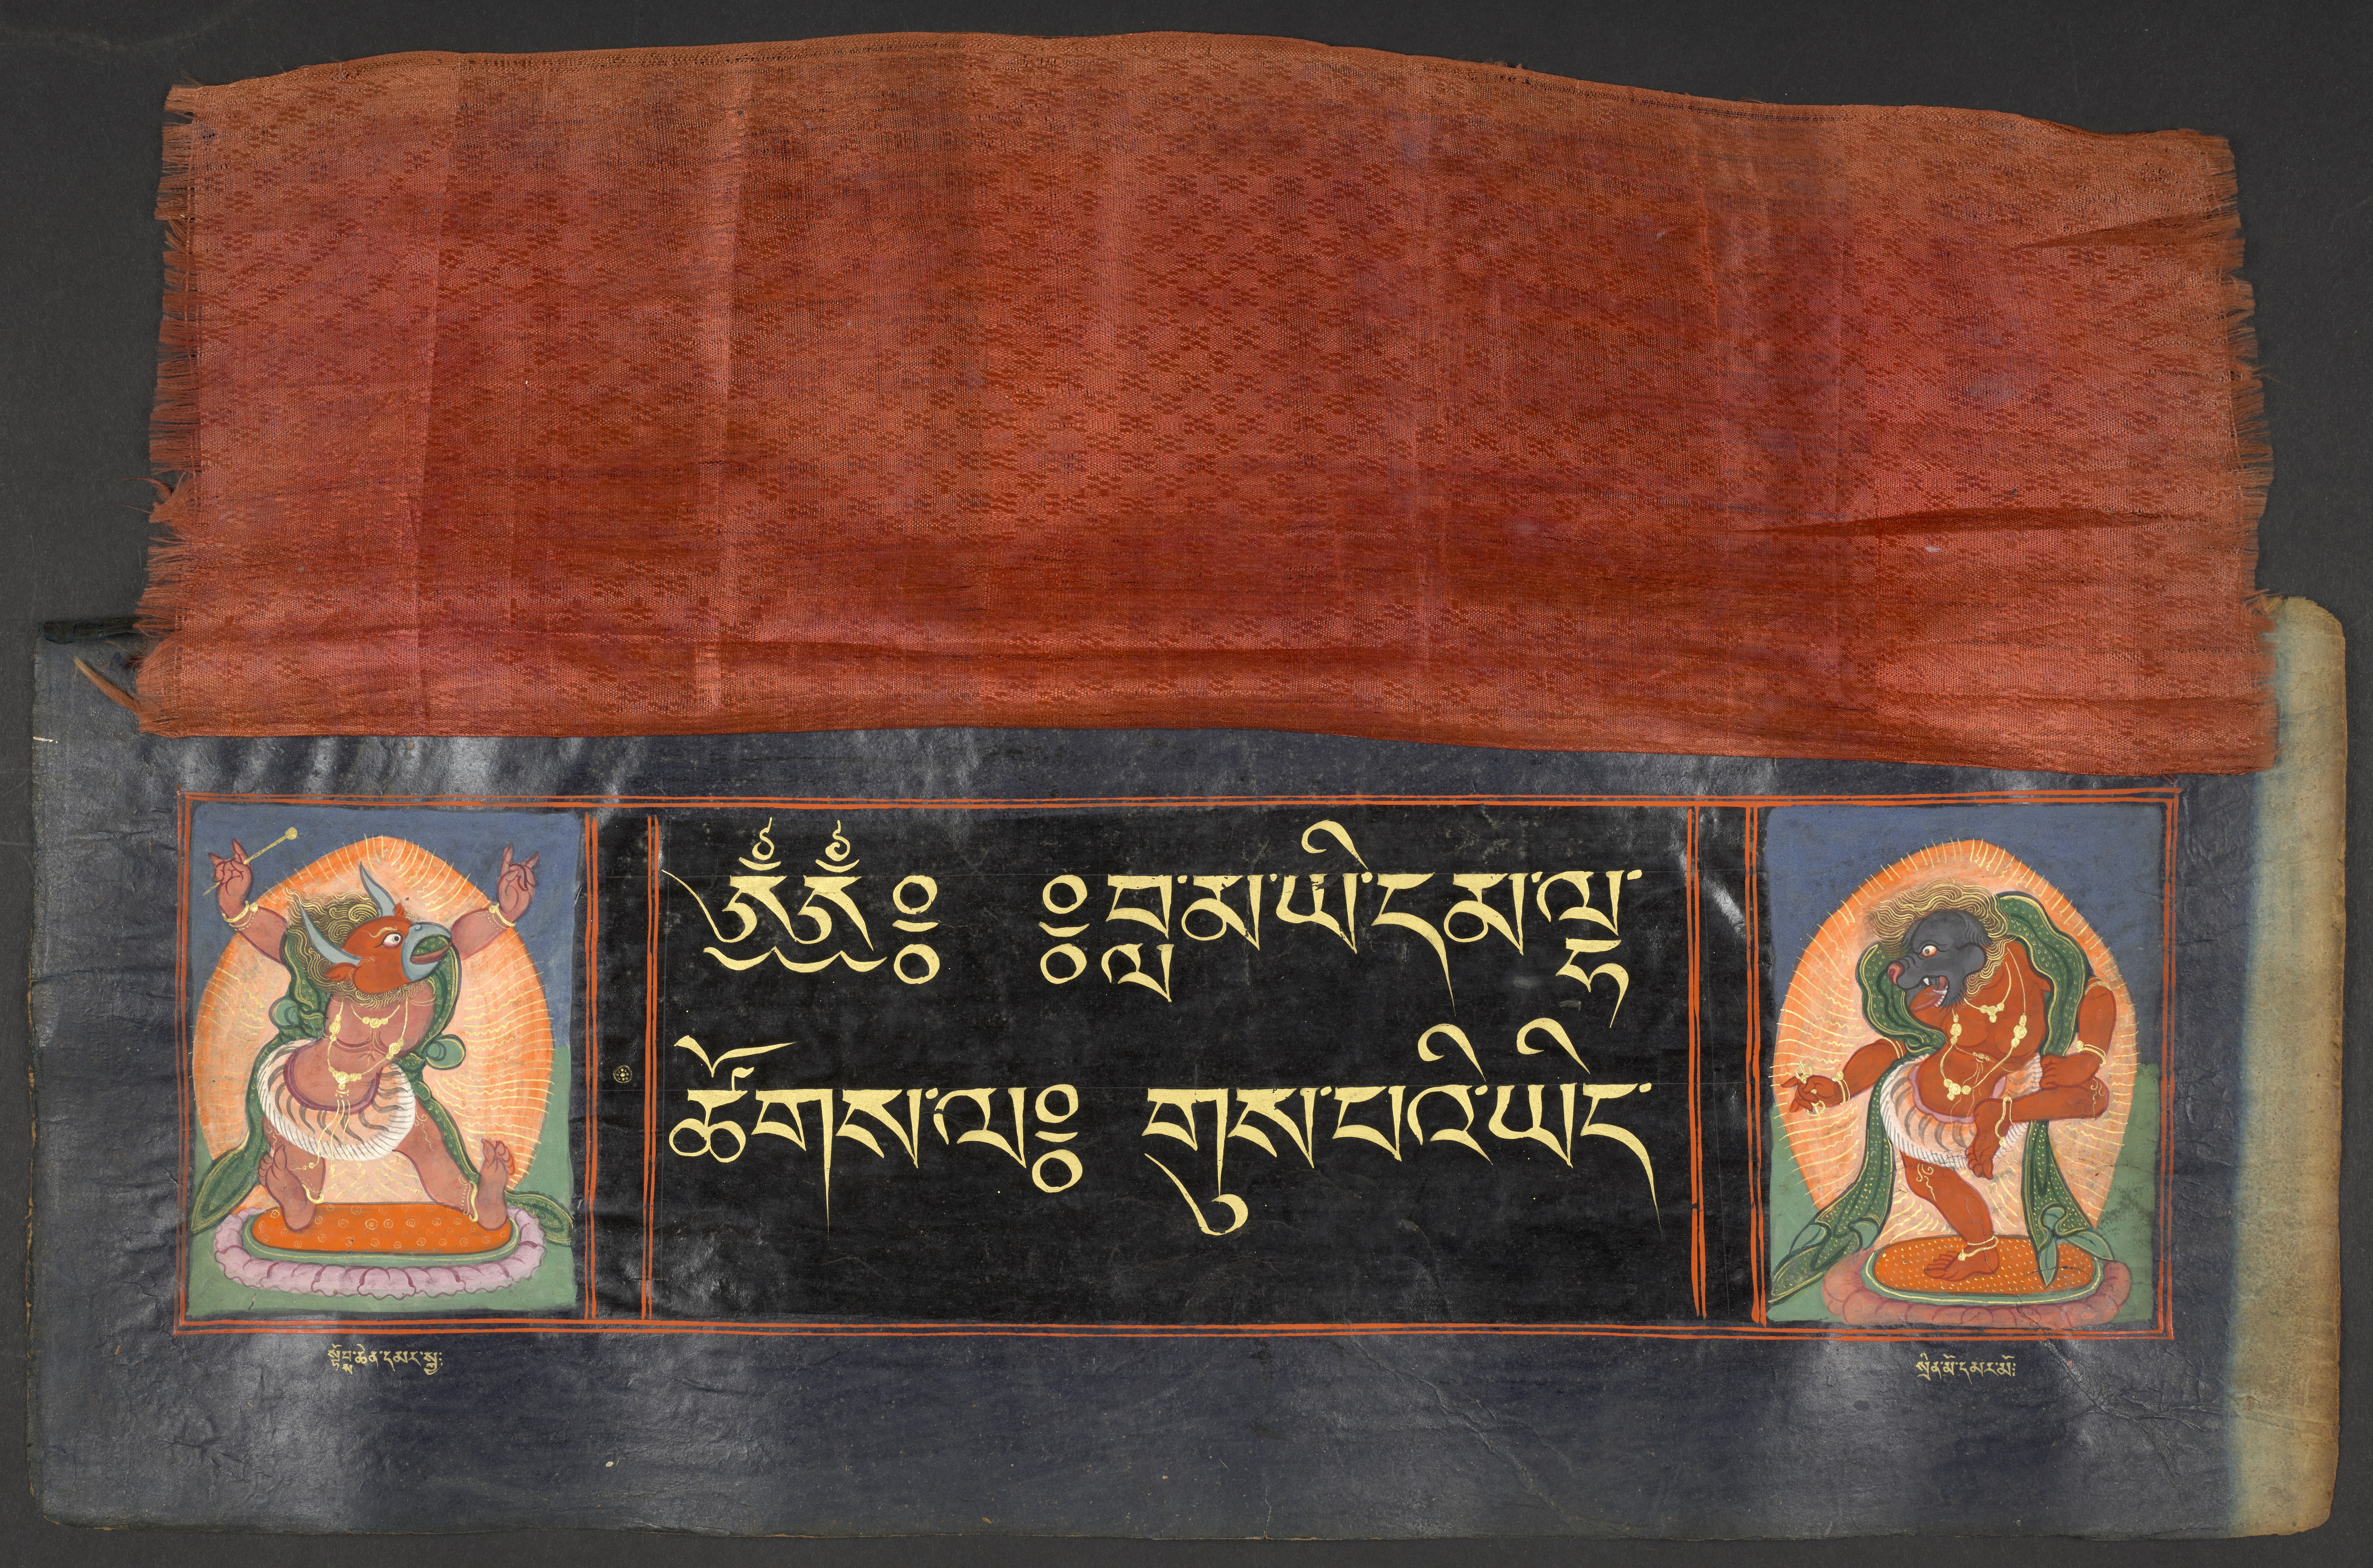 ༄༅༔ ༔བླ་མ་ཡི་དམ་ལྷ་
ཚོགས་ལ༔ གུས་པའི་ཡིད་
སྟོབྶ་ཆེན་དམར་སྐྱ༔
སྲིན་མོ་དམར་མོ༔